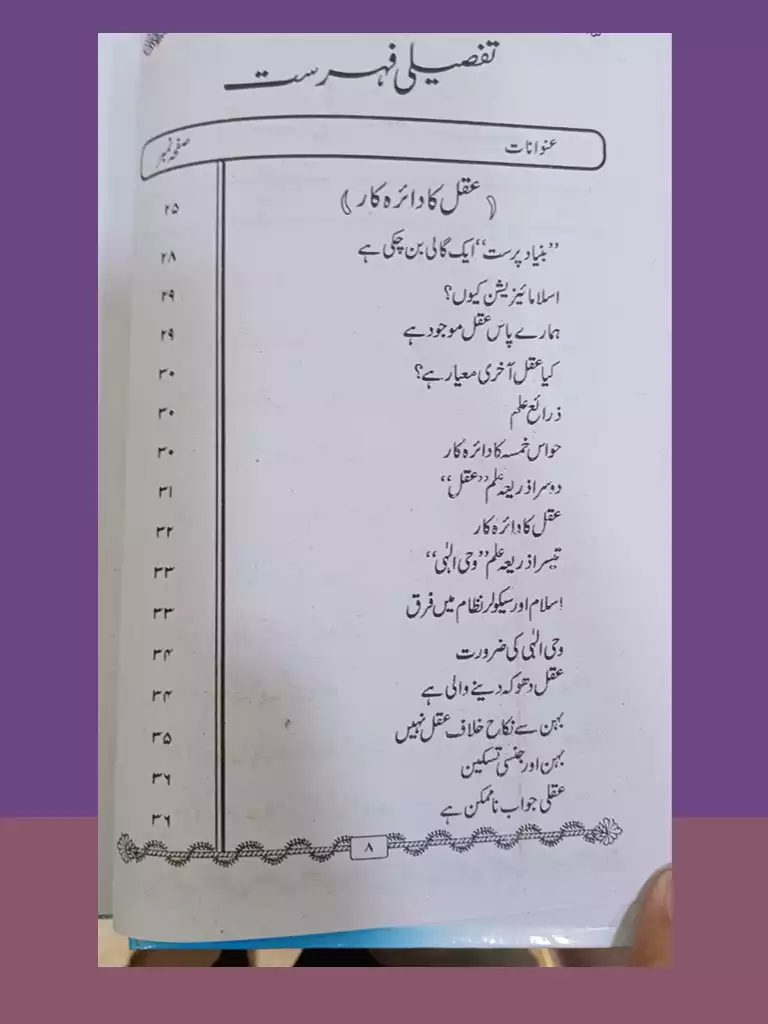 تفصیلی فہرست
عنوانات صفحہ نمبر
﴿عقل کا دائرہ کار﴾ ۲۵
”بنیاد پرست“ ایک گالی بن چکی ہے ۲۸
اسلامائیزیشن کیوں؟ ۲۹
ہمارے پاس عقل موجود ہے ۲۹
کیا عقل آخری معیار ہے؟ ۳۰
ذرائع علم ۳۰
حواس خمسہ کا دائرہ کار ۳۰
دوسرا ذریعہ علم ”عقل“ ۳۱
عقل کا دائرہ کار ۳۲
تیسرا ذریعہ علم ”وحی الٰہی“ ۳۳
اسلام اور سیکولر نظام میں فرق ۳۳
وحی الٰہی کی ضرورت ۳۴
عقل دھوکہ دینے والی ہے ۳۴
بہن سے نکاح خلاف عقل نہیں ۳۵
بہن اور جنسی تسکین ۳۶
عقلی جواب ناممکن ہے ۳۶
۸